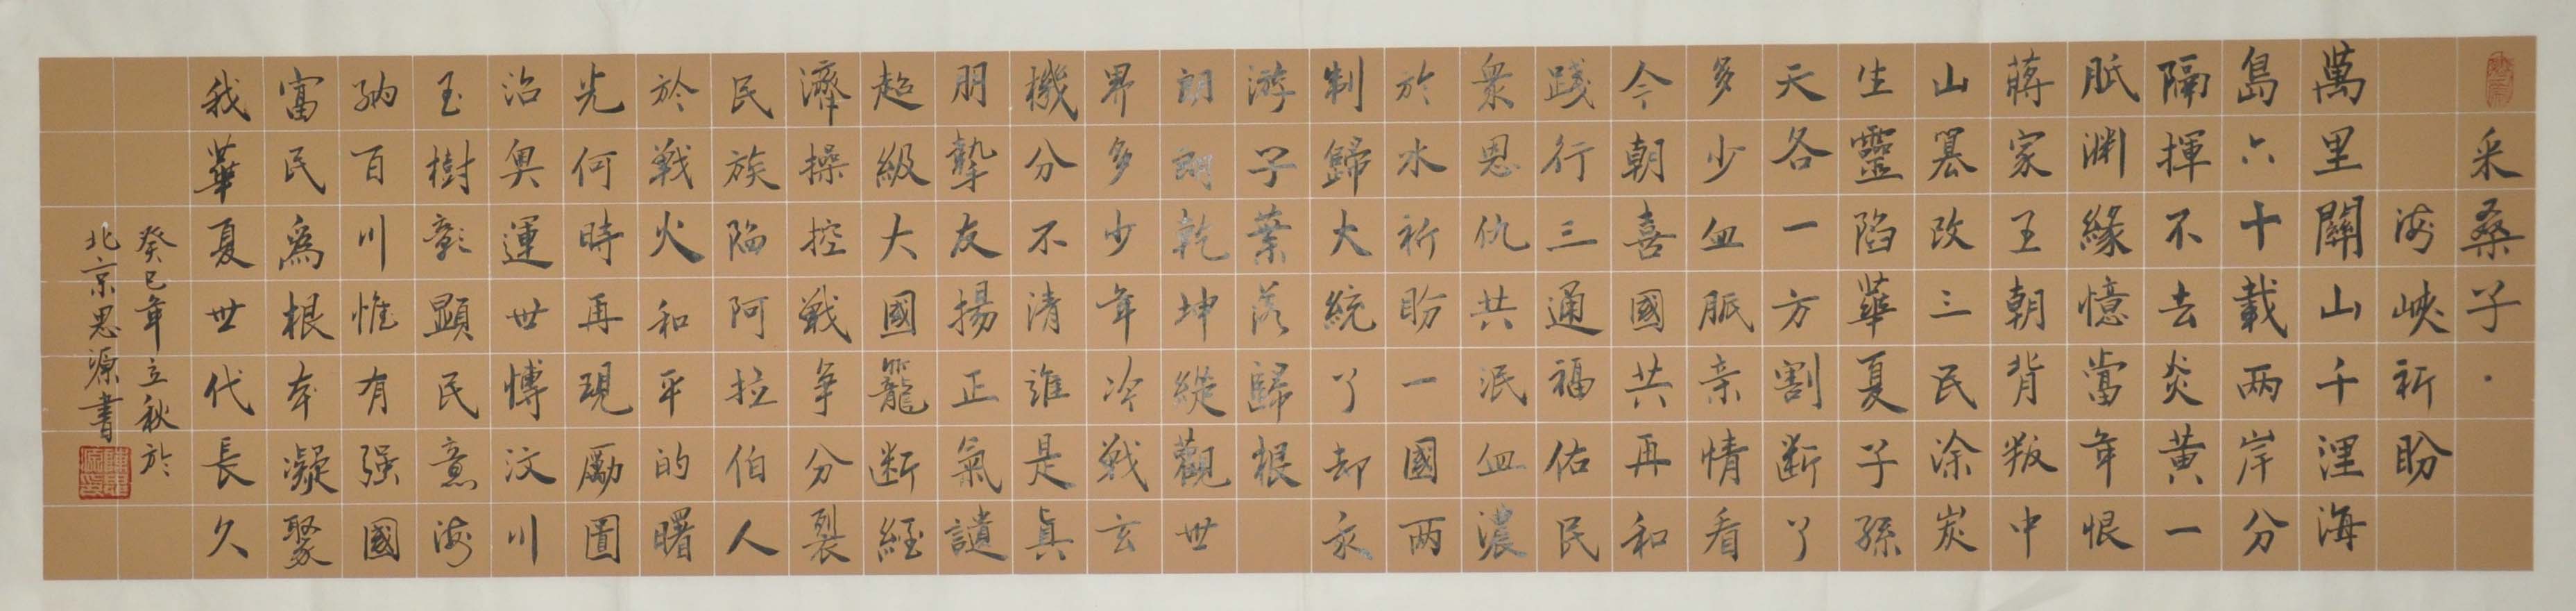 采桑子·
海峡祈盼
萬里關山千浬海
島六十載两岸分
隔揮不去炎黃一
脈渊緣憶當年恨
蔣家王朝背叛中
山篡改三民涂炭
生靈陷華夏子孫
天各一方割断了
多少血脈亲情看
今朝喜國共再和
踐行三通福佑民
衆恩仇共泯血濃
於水祈盼一國两
制歸大統了却永
游子葉落歸根
朗朗乾坤縱觀世
界多少年冷戦玄
機分不清誰是真
朋摯友揚正氣譴
超級大國籠断經
濟操控戦争分裂
民族陷阿拉伯人
於戦火和平的曙
光何時再現勵圖
治奥運世博汶川
玉樹彰顯民意海
納百川惟有强國
富民爲根本凝聚
我華夏世代長久
癸巳年立秋於
北京思源書